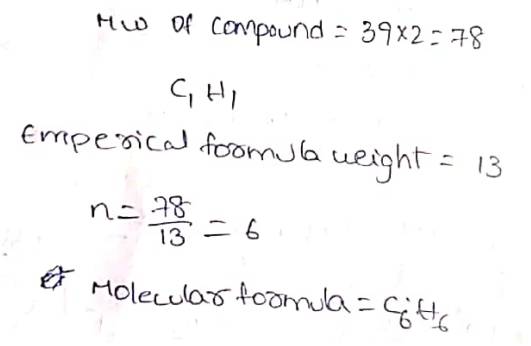 MW Of Compound = 39×2 = 78
C₁ H₁
Emperical foormula weight = 13
n = 78/13 = 6
Molecular foormula = C₆H₆